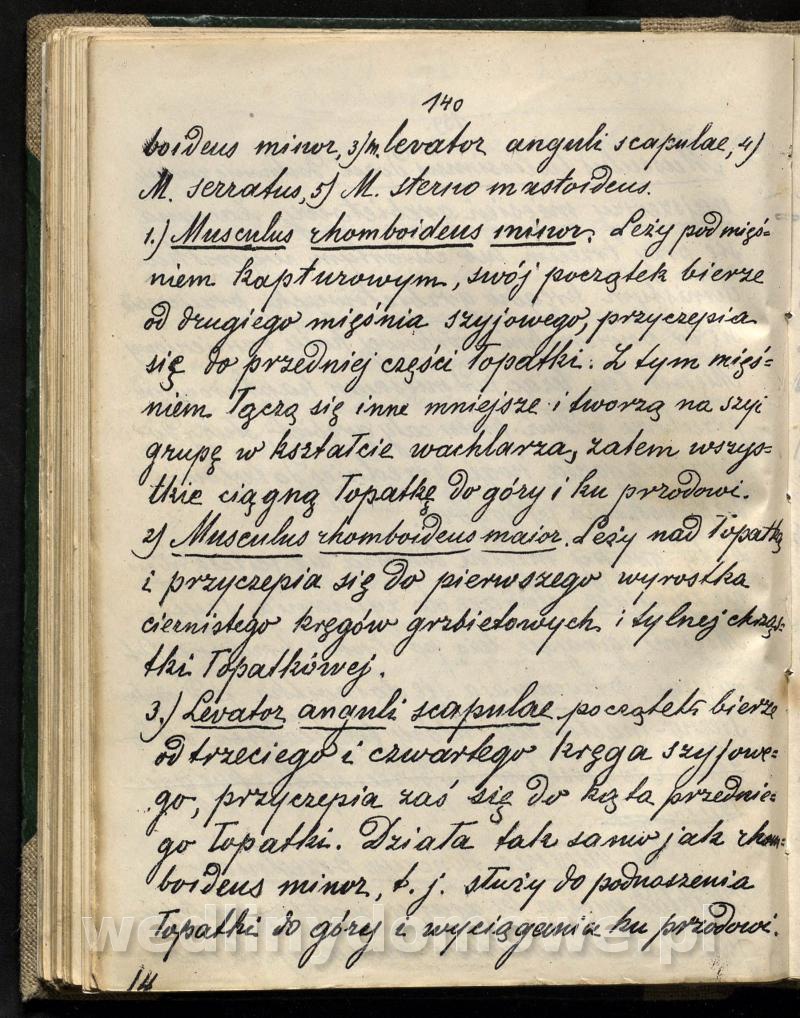 140
boideus minor, 3) m. levator anguli scapulae, 4)
M. serratus, 5) M. sterno mastoideus.
1.) Musculus rhomboideus minor. Leży pod mięś=
niem kapturowym, swój początek bierze
od drugiego mięśnia szyjowego, przyczepia
się do przedniej części łopatki. Z tym mięś=
niem łączą się inne mniejsze i tworzą na szyi
grupę w kształcie wachlarza, zatem wszys=
tkie ciągną łopatkę do góry i ku przodowi.
2) Musculus rhomboideus maior. Leży nad łopatką
i przyczepia się do pierwszego wyrostka
ciernistego kręgów grzbietowych i tylnej chrząs=
tki łopatkówej.
3.) Levator anguli scapulae początek bierze
od trzeciego i czwartego kręga szyjowe=
go, przyczepia zaś się do kąta przednie=
go łopatki. Działa tak samo jak rhom=
boideus minor, t. j. służy do podnoszenia
łopatki do góry i wyciągania ku przodowi.
14
wedlinydomowe.pl